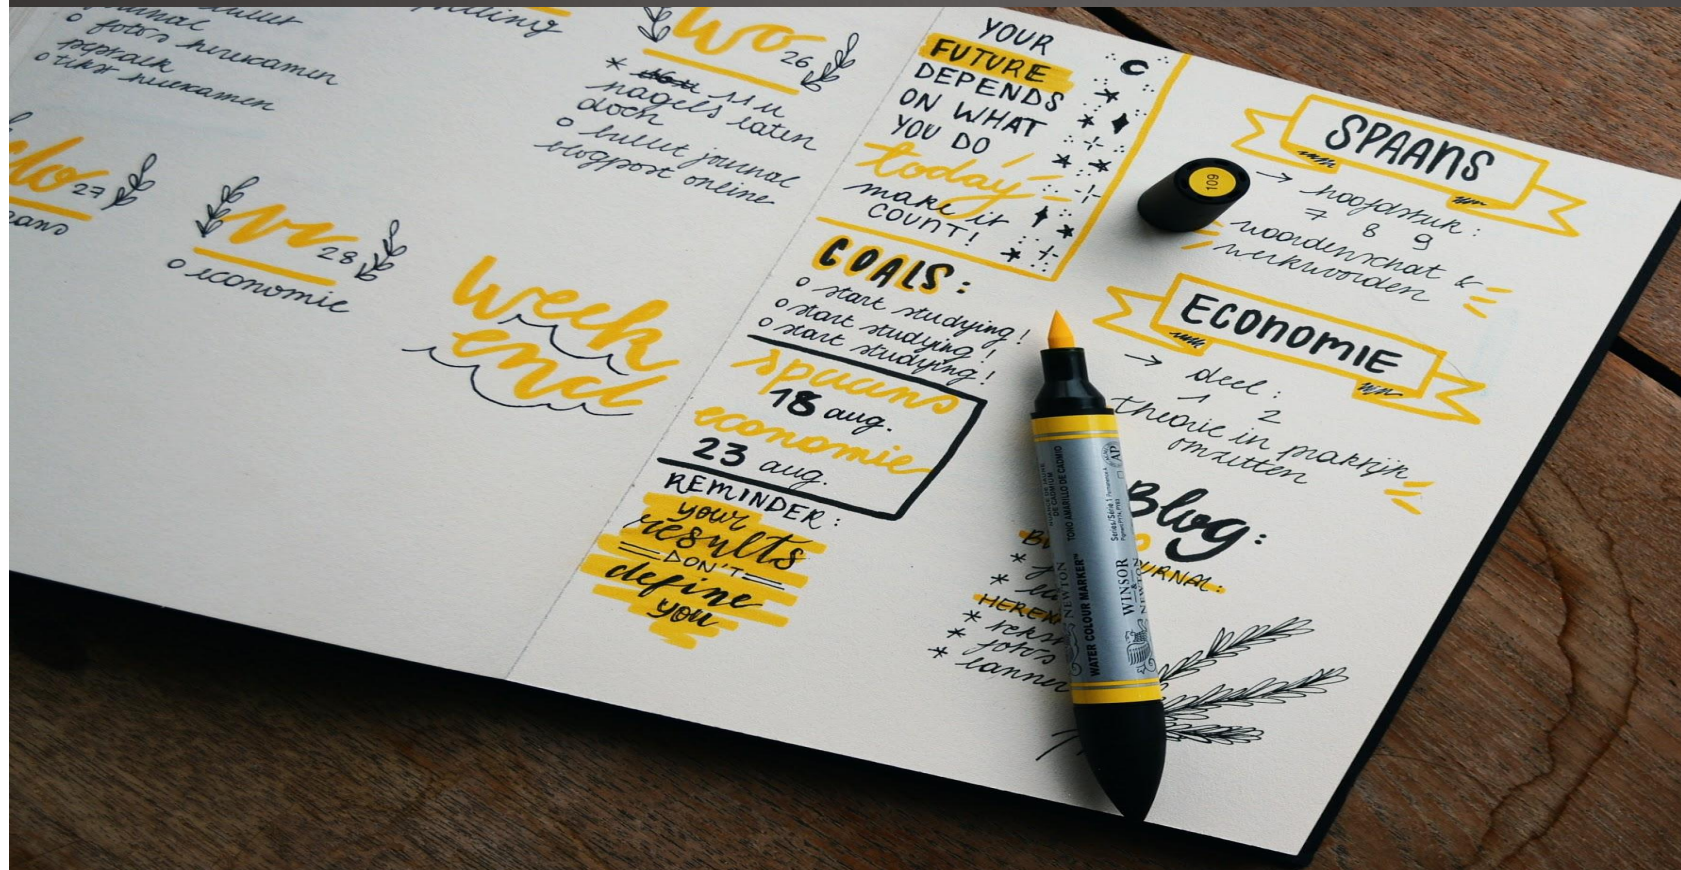 bullet
journal
o foto's herexamen
o tekst herexamen
wo 26
* 11 u
nagels laten
doen
o bullet journal
blogpost online
do 27
vr 28
o economie
week
end
YOUR
FUTURE
DEPENDS
ON WHAT
YOU DO
today
make it
COUNT!
GOALS:
o start studying!
o start studying!
o start studying!
spaans
18 aug.
economie
23 aug.
REMINDER:
your
results
DON'T
define
you
SPAANS
→ hoofdstuk:
7 8 9
woordenschat &
werkwoorden
ECONOMIE
→ deel:
1 2
theorie in praktijk
omzetten
Blog:
*
*
* tekst
* foto's
*
109
TONO AMARILLO DE CADMIO
WATER COLOUR MARKER™
WINSOR
& NEWTON
Series/Série 1
AP